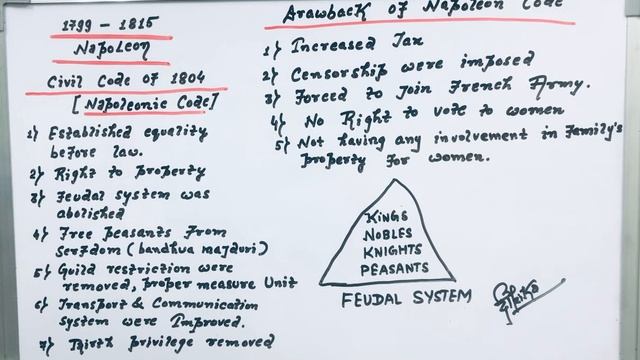 1799 - 1815
Napoleon
Civil Code of 1804
[Napoleonic Code]
1) Established equality
before law.
2) Right to property
3) Feudal system was
abolished
4) Free peasants from
Serfdom (bandhua majduri)
5) Guild restriction were
removed, proper measure Unit
6) Transport & Communication
system were Improved.
7) Birth privilege removed
Drawback of Napoleon Code
1) Increased Tax
2) Censorship were imposed
3) Forced to join French Army.
4) No Right to vote to women
5) Not having any involvement in Family's
property for women.
KINGS
NOBLES
KNIGHTS
PEASANTS
FEUDAL SYSTEM